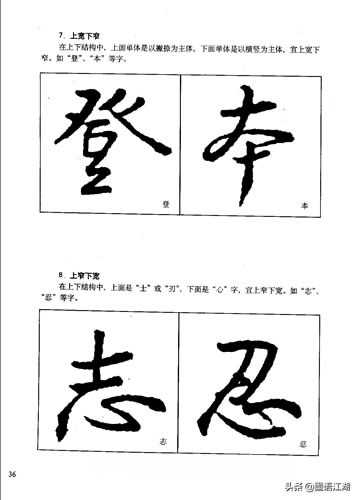 7．上宽下窄
在上下结构中，上面单体是以撇捺为主体，下面单体是以横竖为主体，宜上宽下
窄。如“登”、“本”等字。
登 本
登 本
8．上窄下宽
在上下结构中，上面是“士”或“刃”，下面是“心”字，宜上窄下宽。如“志”、
“忍”等字。
志 忍
志 忍
36
头条 @墨语江湖